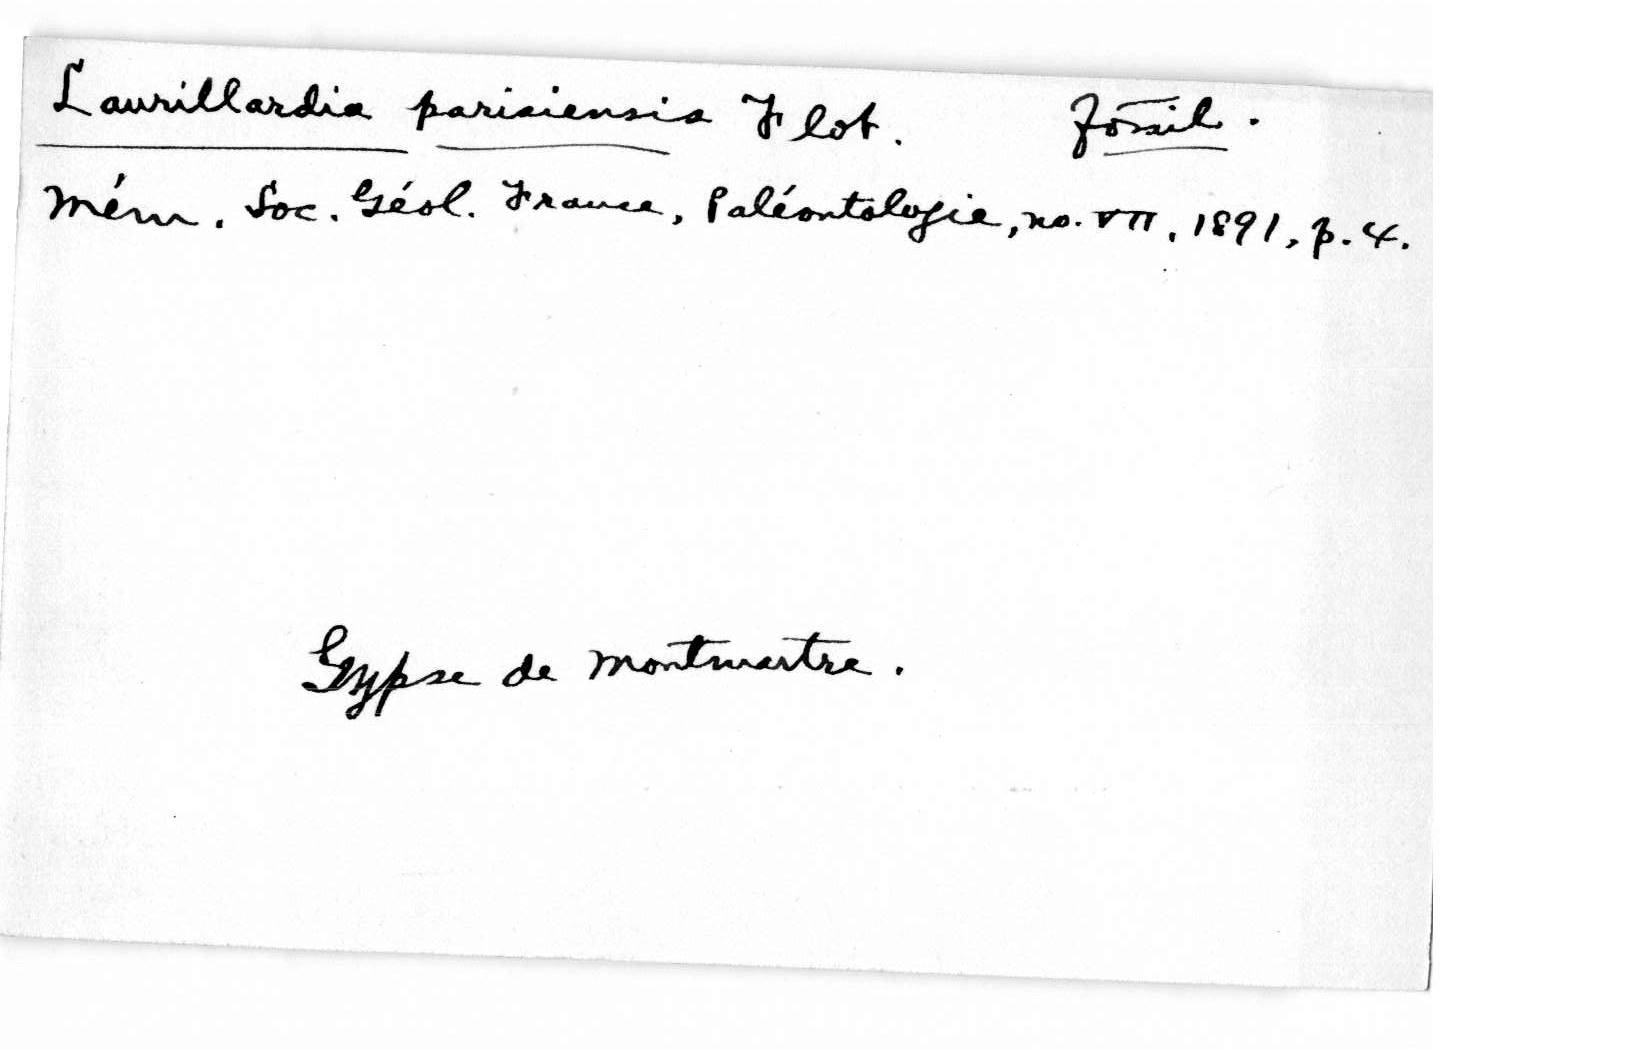 Laurillardia parisiensis Flot. Fossil.
Mém. Soc. Géol. France, Paléontologie, no. VII, 1891, p. 4.
Gypse de Montmartre.